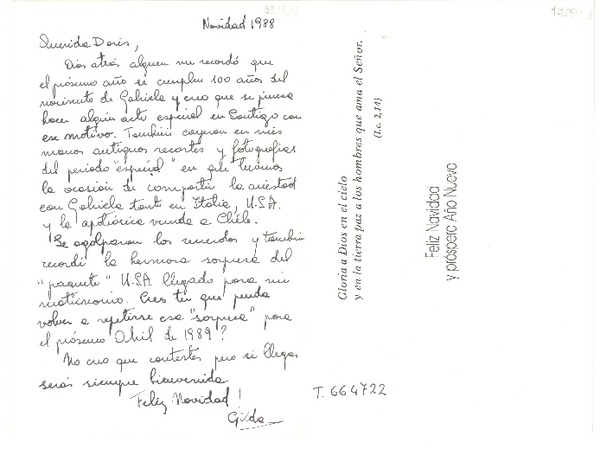 Navidad 1988
Querida Doris,
Días atrás alguien me recordó que
el próximo año se cumplen 100 años del
nacimiento de Gabriela y creo que se piensa
hacer algún acto especial en Santiago con
ese motivo. También cayeron en mis
manos antiguos recortes y fotografías
del período "especial" en que tuvimos
la ocasión de compartir la amistad
con Gabriela tanto en Italia, U.S.A.
y la apoteósica venida a Chile.
Se agolparon los recuerdos y también
recordé la hermosa sorpresa del
"paquete" U.S.A llegado para mi
matrimonio. Crees tú que pueda
volver a repetirse esa "sorpresa" para
el próximo Abril de 1989?
No creo que contestes pero si llegas
serás siempre bienvenida
Feliz Navidad!
Gilda
Gloria a Dios en el cielo
y en la tierra paz a los hombres que ama el Señor.
(Lc. 2,14)
Feliz Navidad
y próspero Año Nuevo
T. 664722